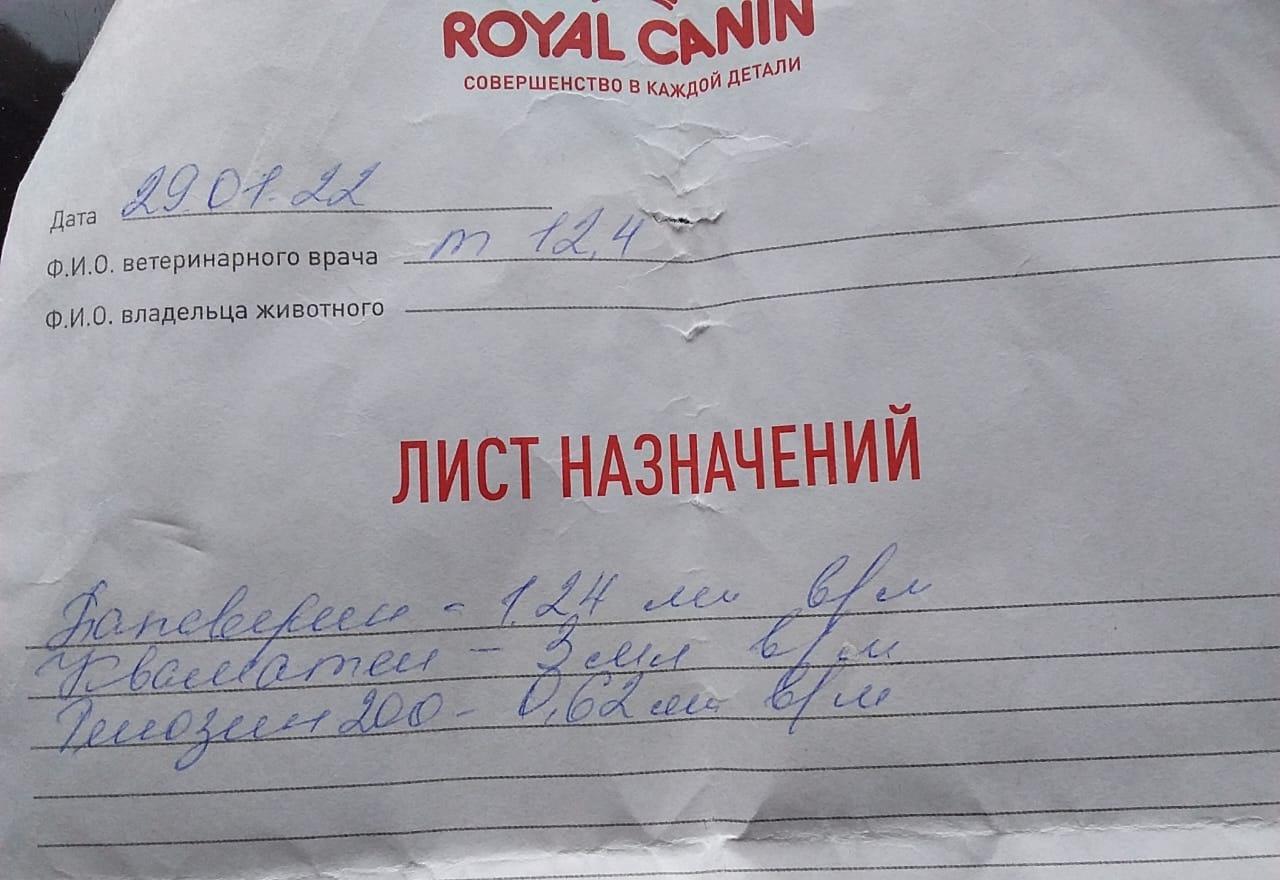 ROYAL CANIN
СОВЕРШЕНСТВО В КАЖДОЙ ДЕТАЛИ
Дата 29.01.22
Ф.И.О. ветеринарного врача m 12,4
Ф.И.О. владельца животного
ЛИСТ НАЗНАЧЕНИЙ
Папаверин - 1,24 мл в/м
Кваматен - 3 мл в/м
Тилозин 200 - 0,62 мл в/м